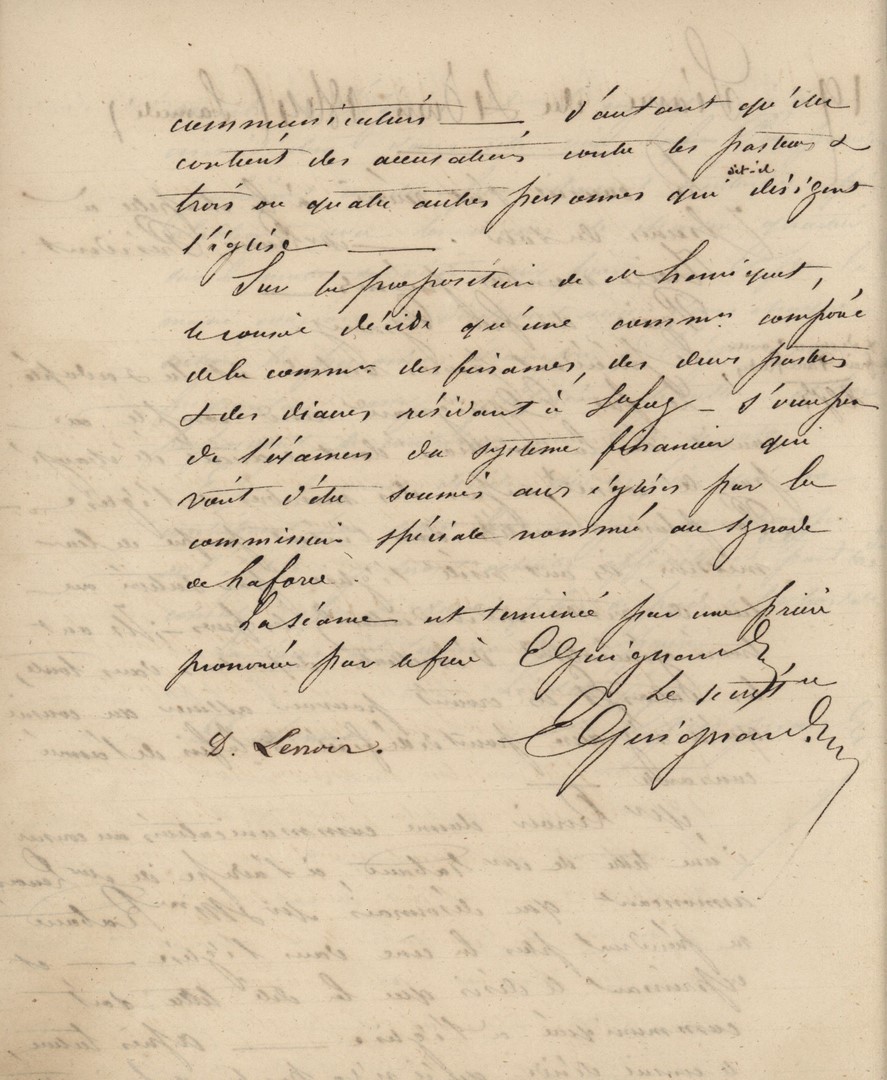 communications ——— d'autant qu'elle
contient des accusations contre les pasteurs &
trois ou quatre autres personnes qui dit-il dirigent
l'église ———
Sur la proposition de Mr
le conseil décide qu'une common. composée
de la common. des finances, des deux pasteurs
& des diacres résidant à — s'occupera
de l'éxamen du système financier qui
vient d'être soumis aux églises par la
commission spéciale nommée au synode
de Laforce.
La séance est terminée par une prière
prononcée par le frère EGuignard
Le secrétre
D. Lenoir.
EGuignard